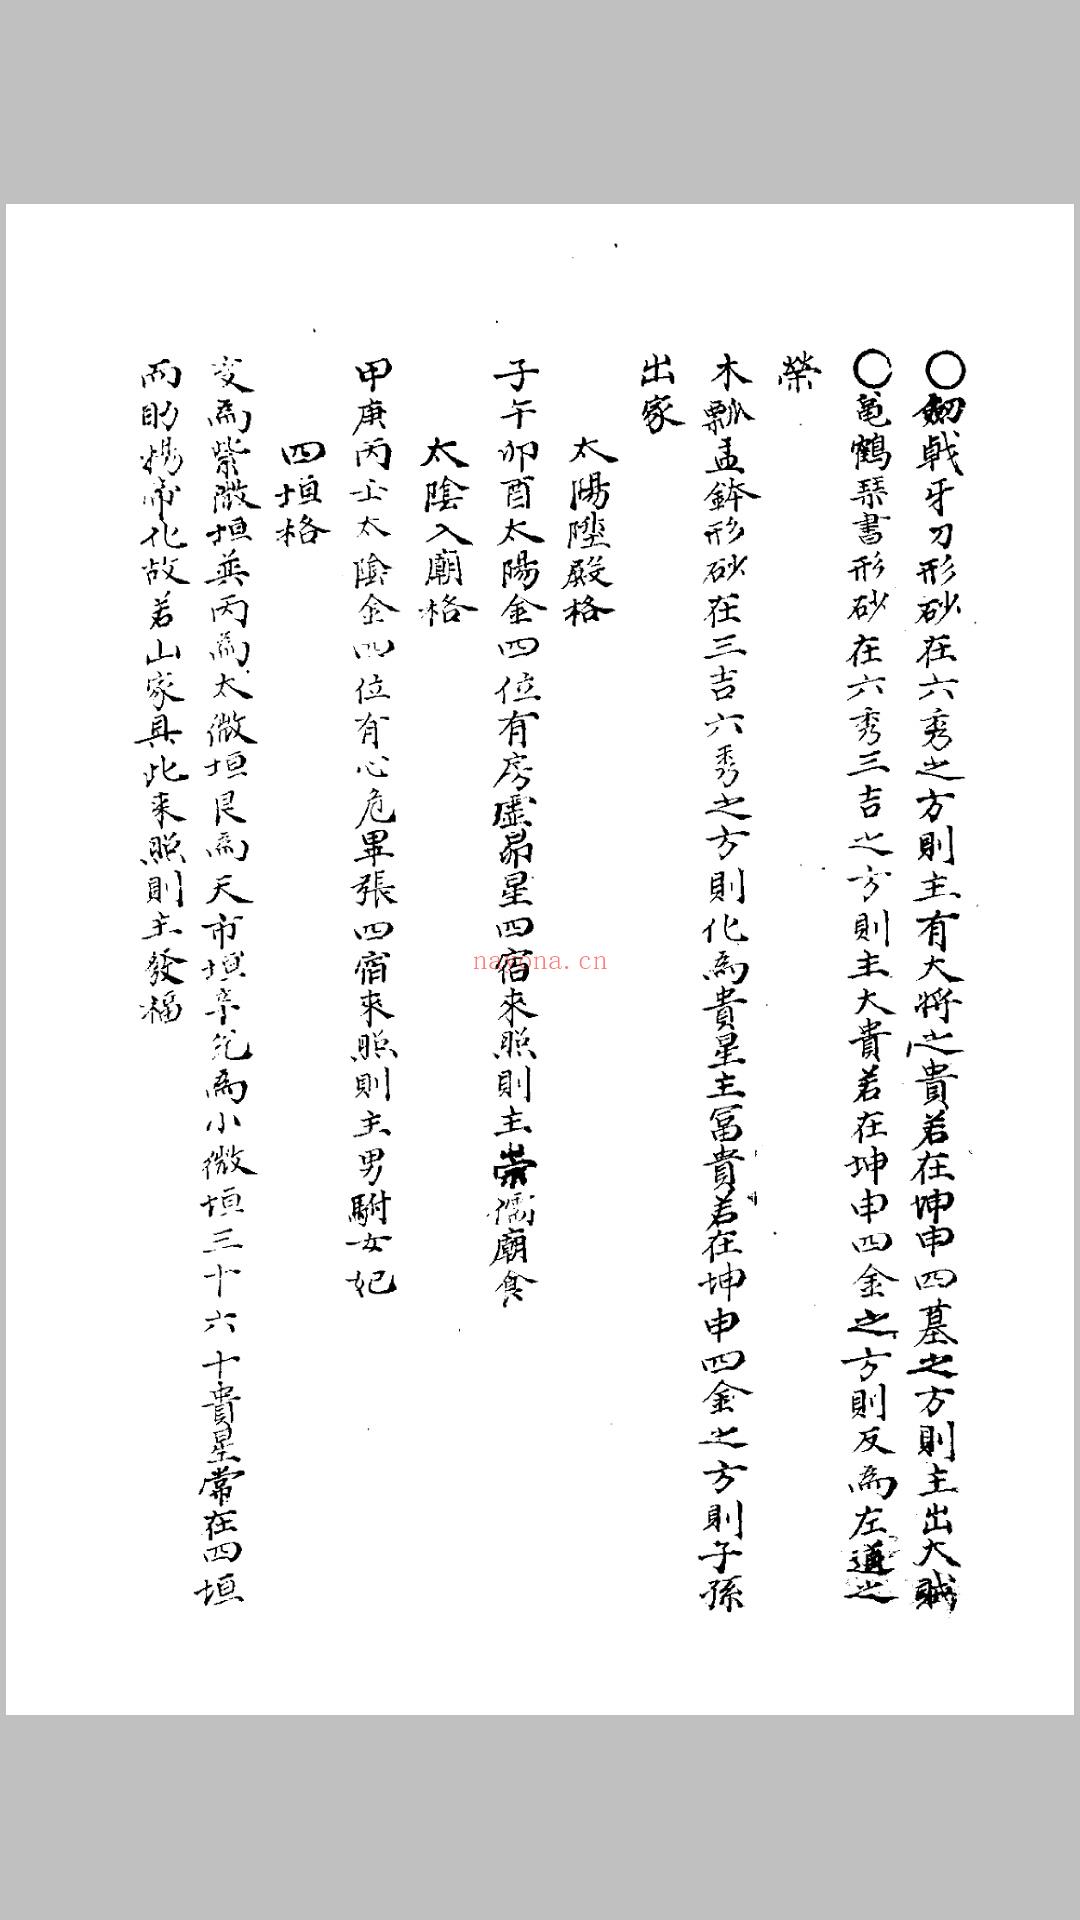 〇劒戟牙刀形砂在六秀之方則主有大將之貴若在坤申四墓之方則主出大賊
〇亀鶴琹書形砂在六秀三吉之方則主大貴若在坤申四金之方則反為左道之
榮
木瓢盂鉢形砂在三吉六秀之方則化為貴星主冨貴若在坤申四金之方則子孫
出家
太陽陞殿格
子午卯酉太陽金四位有房虛昴星四宿來照則主崇儒廟食
太陰入廟格
甲庚丙壬太陰金四位有心危畢張四宿來照則主男駙女妃
四垣格
亥為紫微垣巽丙為太微垣艮為天市垣辛兌為小微垣三十六十貴星常在四垣
而助揚帝化故若山家具此來照則主發福
nayona.cn